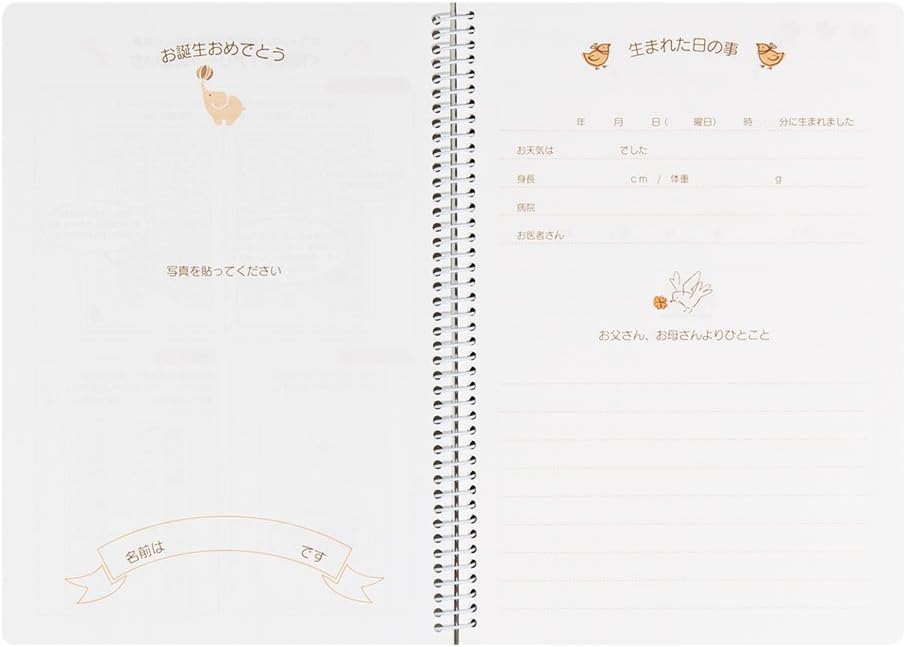 お誕生おめでとう
写真を貼ってください
名前は です
生まれた日の事
年 月 日( 曜日) 時 分に生まれました
お天気は でした
身長 cm / 体重 g
病院
お医者さん
お父さん、お母さんよりひとこと